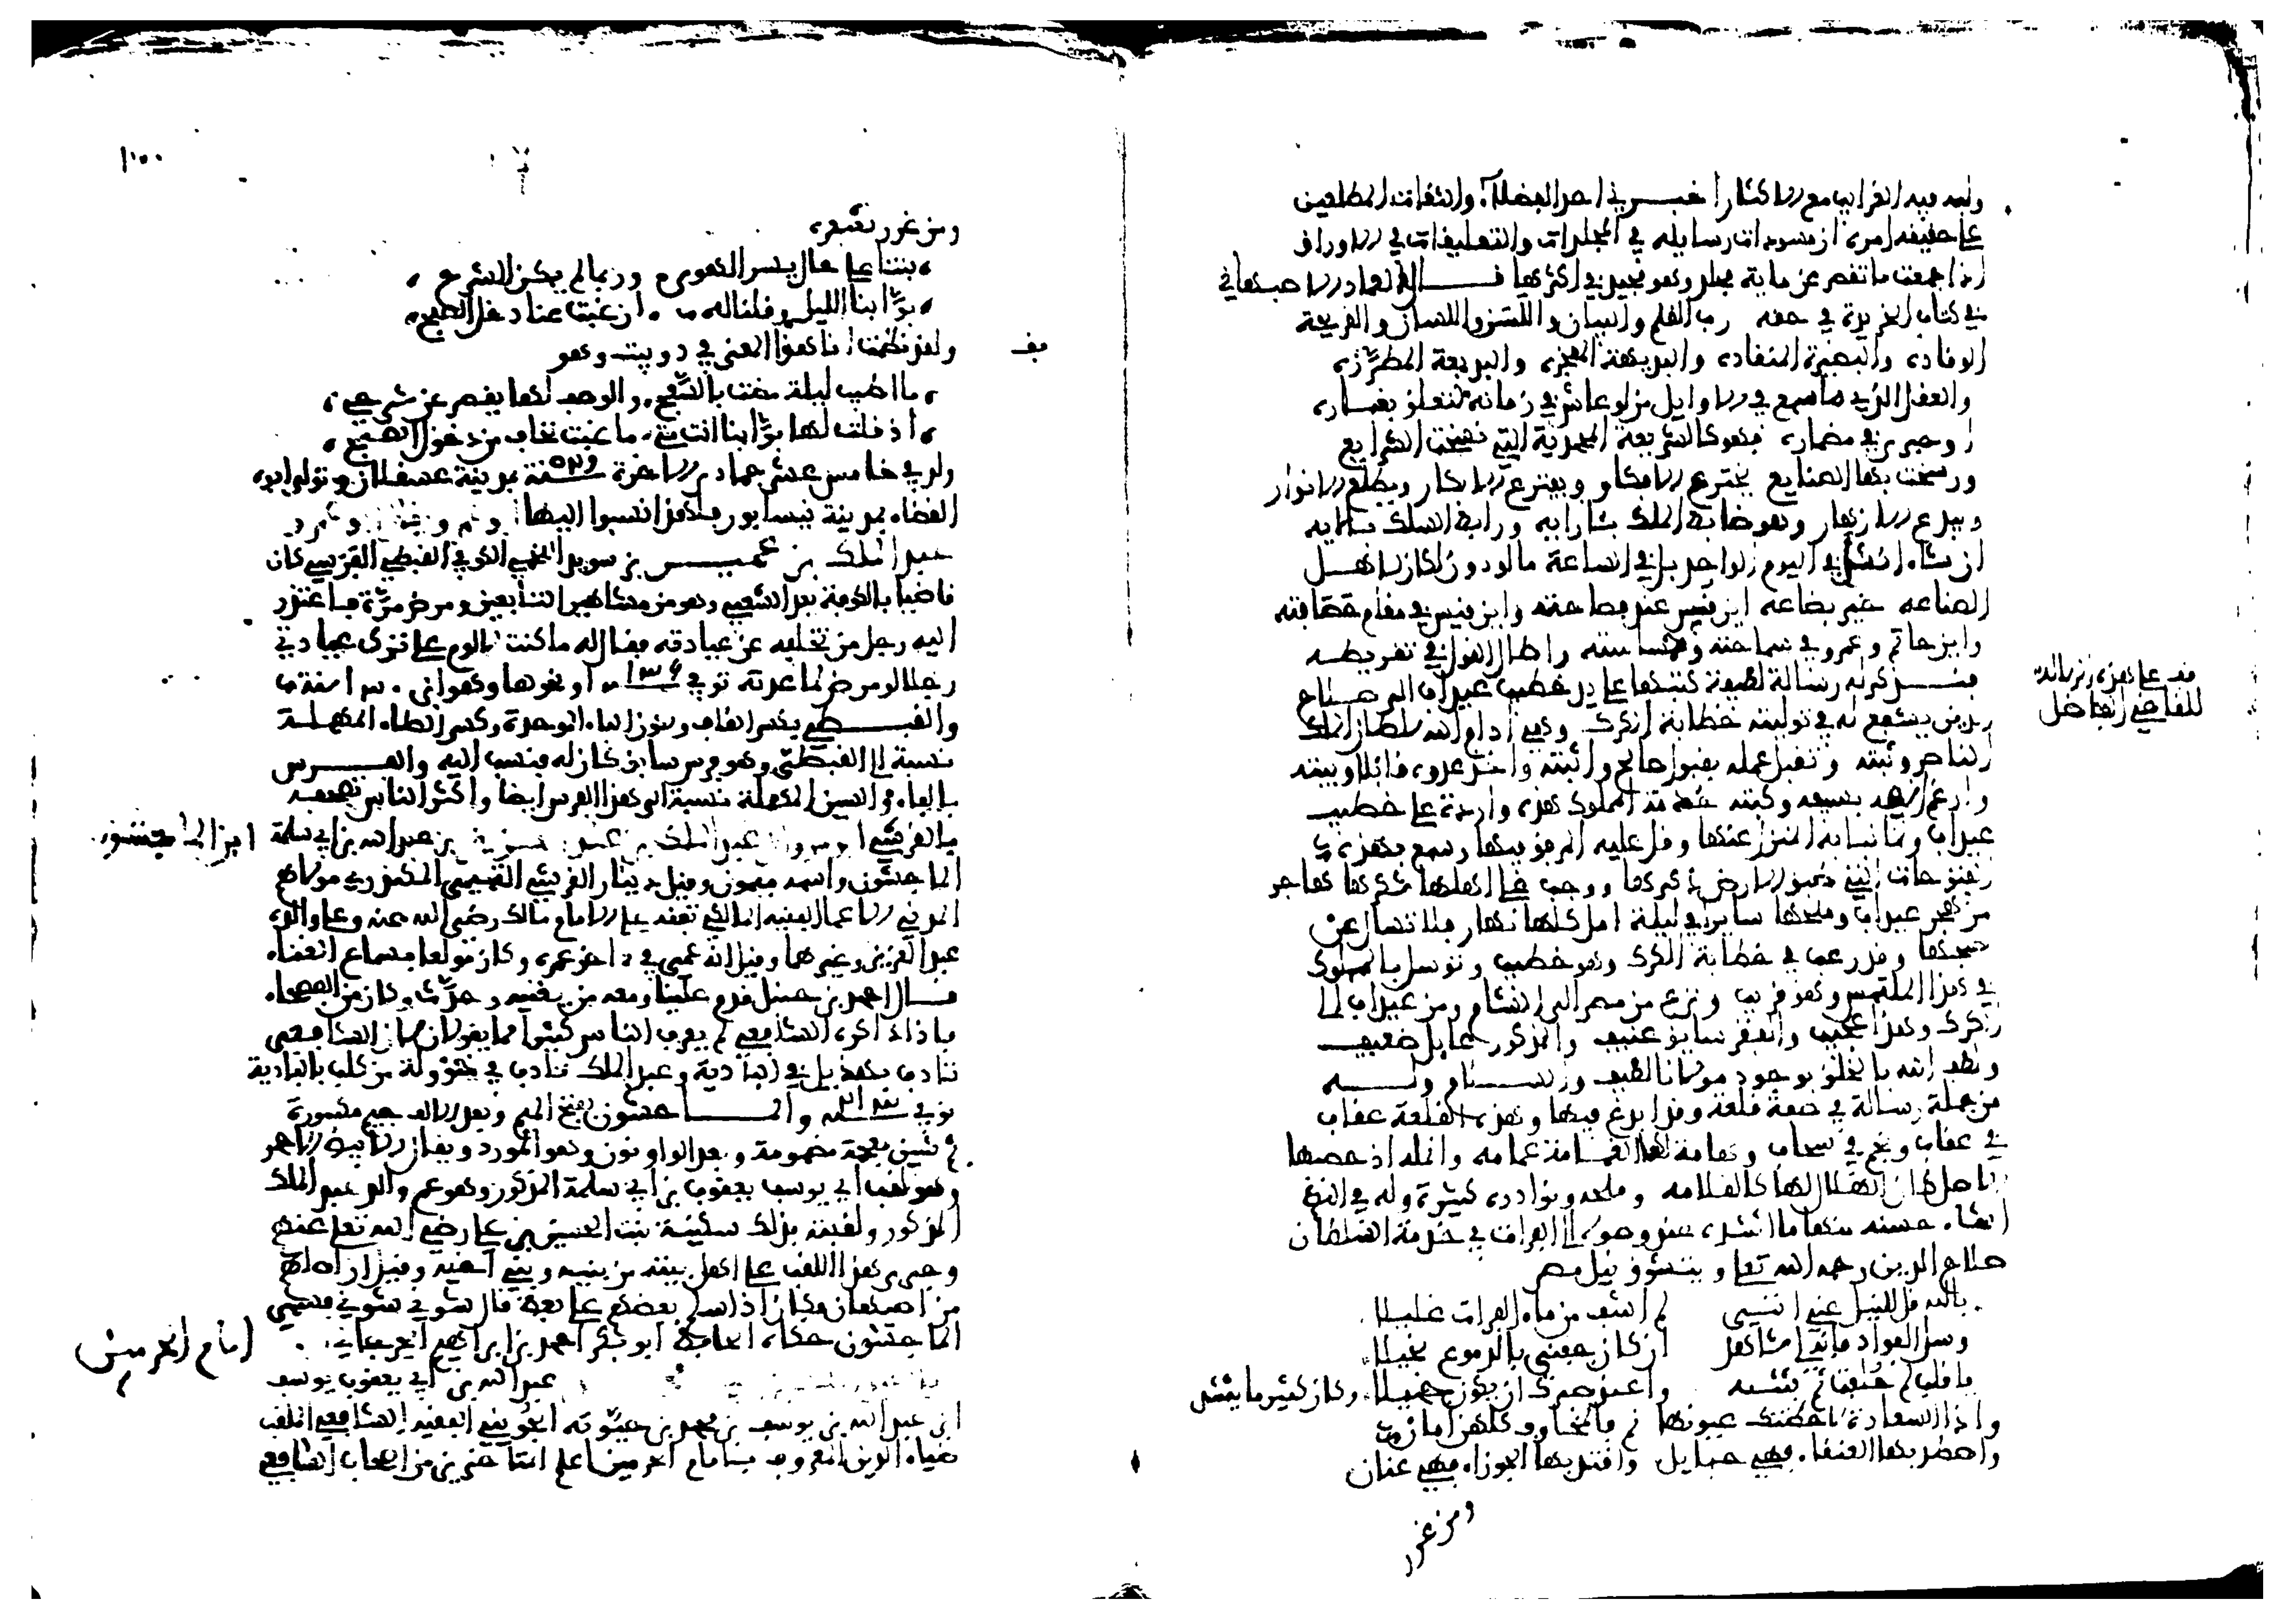 وله فيه الغرايب مع الاكثار اخبرني احد الفضلاء والثقات المطلعين
على حقيقة امره ان مسودات رسايله في المجلدات والتعليقات في الاوراق
اذا جمعت ما تقصر عن ماية مجلد وهو مجيد في اكثرها قال العماد الاصبهاني
في كتاب الخريدة في حقه رب القلم والبيان واللسن واللسان والقريحة
الوقاده والبصيرة النقاده والبديهة المعجزه والبديعة المطرزه
والفضل الذي ما سمع في الاوايل من لو عاش في زمانه لتعلق بغباره
او جرى في مضماره فهو كالشريعة المحمدية التي نسخت الشرايع
ورسخت بها الصنايع يخترع الافكار ويفترع الابكار ويطلع الانوار
ويبدع الازهار وهو ضابط الملك بارايه ورابط السلك
ان شاء انشا في اليوم الواحد بل في الساعة ما لو دون لكان لاهل
الصناعه خير بضاعه اين قس عند فصاحته واين قيس في مقام حصافته
واين حاتم وعمرو في سماحته وحماسته واطال القول في تقريظه
ومن غرر
قف على هذه الرسالة
للقاضي الفاضل
رسالة لطيفة كتبها على يد خطيب عيذاب الى صلاح
الدين يتشفع له في توليته خطابة الكرك وهي ادام الله سلطان الملك
الناصر وثبته وتقبل عمله بقبول صالح وانبته واخذ عدوه قائلا او بيته
وارغم انفه بسيفه وكبته خدمة المملوك هذه واردة على خطيب
عيذاب ولما نبا به المنزل عنها وقل عليه المرفق فيها وسمع بهذه
الفتوحات التي طبق الارض ذكرها ووجب على اهلها شكرها هاجر
من هجير عيذاب وملحها ساريا في ليلة امل كلها نهار فلا تسال عن
صبحها وقد رغب في خطابة الكرك وهو خطيب وتوسل بالمملوك
في هذا الملتمس وهو قريب ونزع من مصر الى الشام ومن عيذاب الى
الكرك وهذا عجيب والفقر سايق عنيف والمذكور عايل ضعيف
ولطف الله بالخلق بوجود مولانا لطيف والسلام وله
من جملة رسالة في صفة قلعة وهذه القلعة عقاب
في عقاب ونجم في سحاب وهامة لها الغمامة عمامه وانملة اذا خضبها
الاصيل كان الهلال لها كالقلامه وملحه ونوادره كثيرة وله في النظم
اشيا حسنه منها ما انشده عند وصوله الى الفرات في خدمة السلطان
صلاح الدين رحمه الله تعلى ويتشوق نيل مصر
بالله قل للنيل عني انني لم اشف من ماء الفرات غليلا
وسل الفواد فانه لي شاهد ان كان جفني بالدموع بخيلا
يا قلب كم خلفت ثم بثينه واعيذ صبرك ان يكون جميلا وكان كثير ما ينشد
واذا السعادة لاحظتك عيونها نم فالمخاوف كلهن امان
واصطد بها العنقا فهي حبايل واقتد بها الجوزاء فهي عنان
ومن غرر
ومن غرر شعره
بتنا على حال يسر الهوى وربما لم يمكن الشرح
بوابنا الليل وقلنا له ان غبت عنا دخل الصبح
قف
ولقد نظمت انا هذا المعنى في دوبيت وهو
ما اطيب ليلة مضت بالسفح والوصف لها يقصر عن شرحي
اذ قلت لها بوابنا انت متى ما غبت نخاف من دخول الصبح
ولد في خامس عشر جمادى الاخرة سنة ٥٢٩ بمدينة عسقلان وتولى ابوه
القضاء بمدينة بيسان فلهذا انتسبوا اليها
عبد الملك بن عمير بن سويد اللخمي الكوفي القبطي الفرسي كان
قاضيا بالكوفة بعد الشعبي وهو من مشاهير التابعين ومرض مرة فاعتذر
اليه رجل من تخلفه عن عيادته فقال له ما كنت لالوم على ترك عيادتي
رجلا لو مرض لما عدته توفي ١٣٦ او نحوها وهو ابن ١٠٣ سنة
والقبطي بكسر القاف وسكون الباء الموحدة وكسر الطاء المهملة
نسبة الى القبطي وهو فرس سابق كان له فينسب اليه والفرسي
بالفاء والسين المهملة نسبة الى هذا الفرس ايضا واكثر الناس تصحفه
بالقرشي ابو مروان عبد الملك بن عبد العزيز بن عبد الله بن ابي سلمة
ابن الماجشون
الماجشون واسمه ميمون وقيل دينار القرشي التيمي المنكدري مولاهم
المدني الاعمى الفقيه المالكي تفقه على الامام مالك رضي الله عنه وعلى والده
عبد العزيز وغيرهما وقيل انه عمي في اخر عمره وكان مولعا بسماع الغناء
قال احمد بن حنبل قدم علينا ومعه من يغنيه وحدث وكان من الفصحاء
فاذا ذاكره الشافعي لم يعرف الناس كثيرا مما يقولان لان الشافعي
تادب بهذيل في البادية وعبد الملك تادب في خؤولته من كلب بالبادية
توفي ٢١٣ والماجشون بفتح الميم وبعد الالف جيم مكسورة
ثم شين معجمة مضمومة وبعد الواو نون وهو المورد ويقال الابيض الاحمر
وهو لقب ابي يوسف يعقوب بن ابي سلمة المذكور وهو عم والد عبد الملك
المذكور ولقبته بذلك سكينة بنت الحسين بن علي رضي الله تعلى عنهم
وجرى هذا اللقب على اهل بيته من بنيه وبني اخيه وقيل ان اصلهم
من اصبهان وكان اذا سلم بعضهم على بعض قال شوني شوني فسمي
الماجشون حكاه الحافظ ابو بكر احمد بن ابراهيم الجرجاني
امام الحرمين
عبد الله بن ابي يعقوب يوسف
ابن عبد الله بن يوسف بن محمد بن حيويه الجويني الفقيه الشافعي الملقب
ضياء الدين المعروف بامام الحرمين اعلم المتاخرين من اصحاب الشافعي